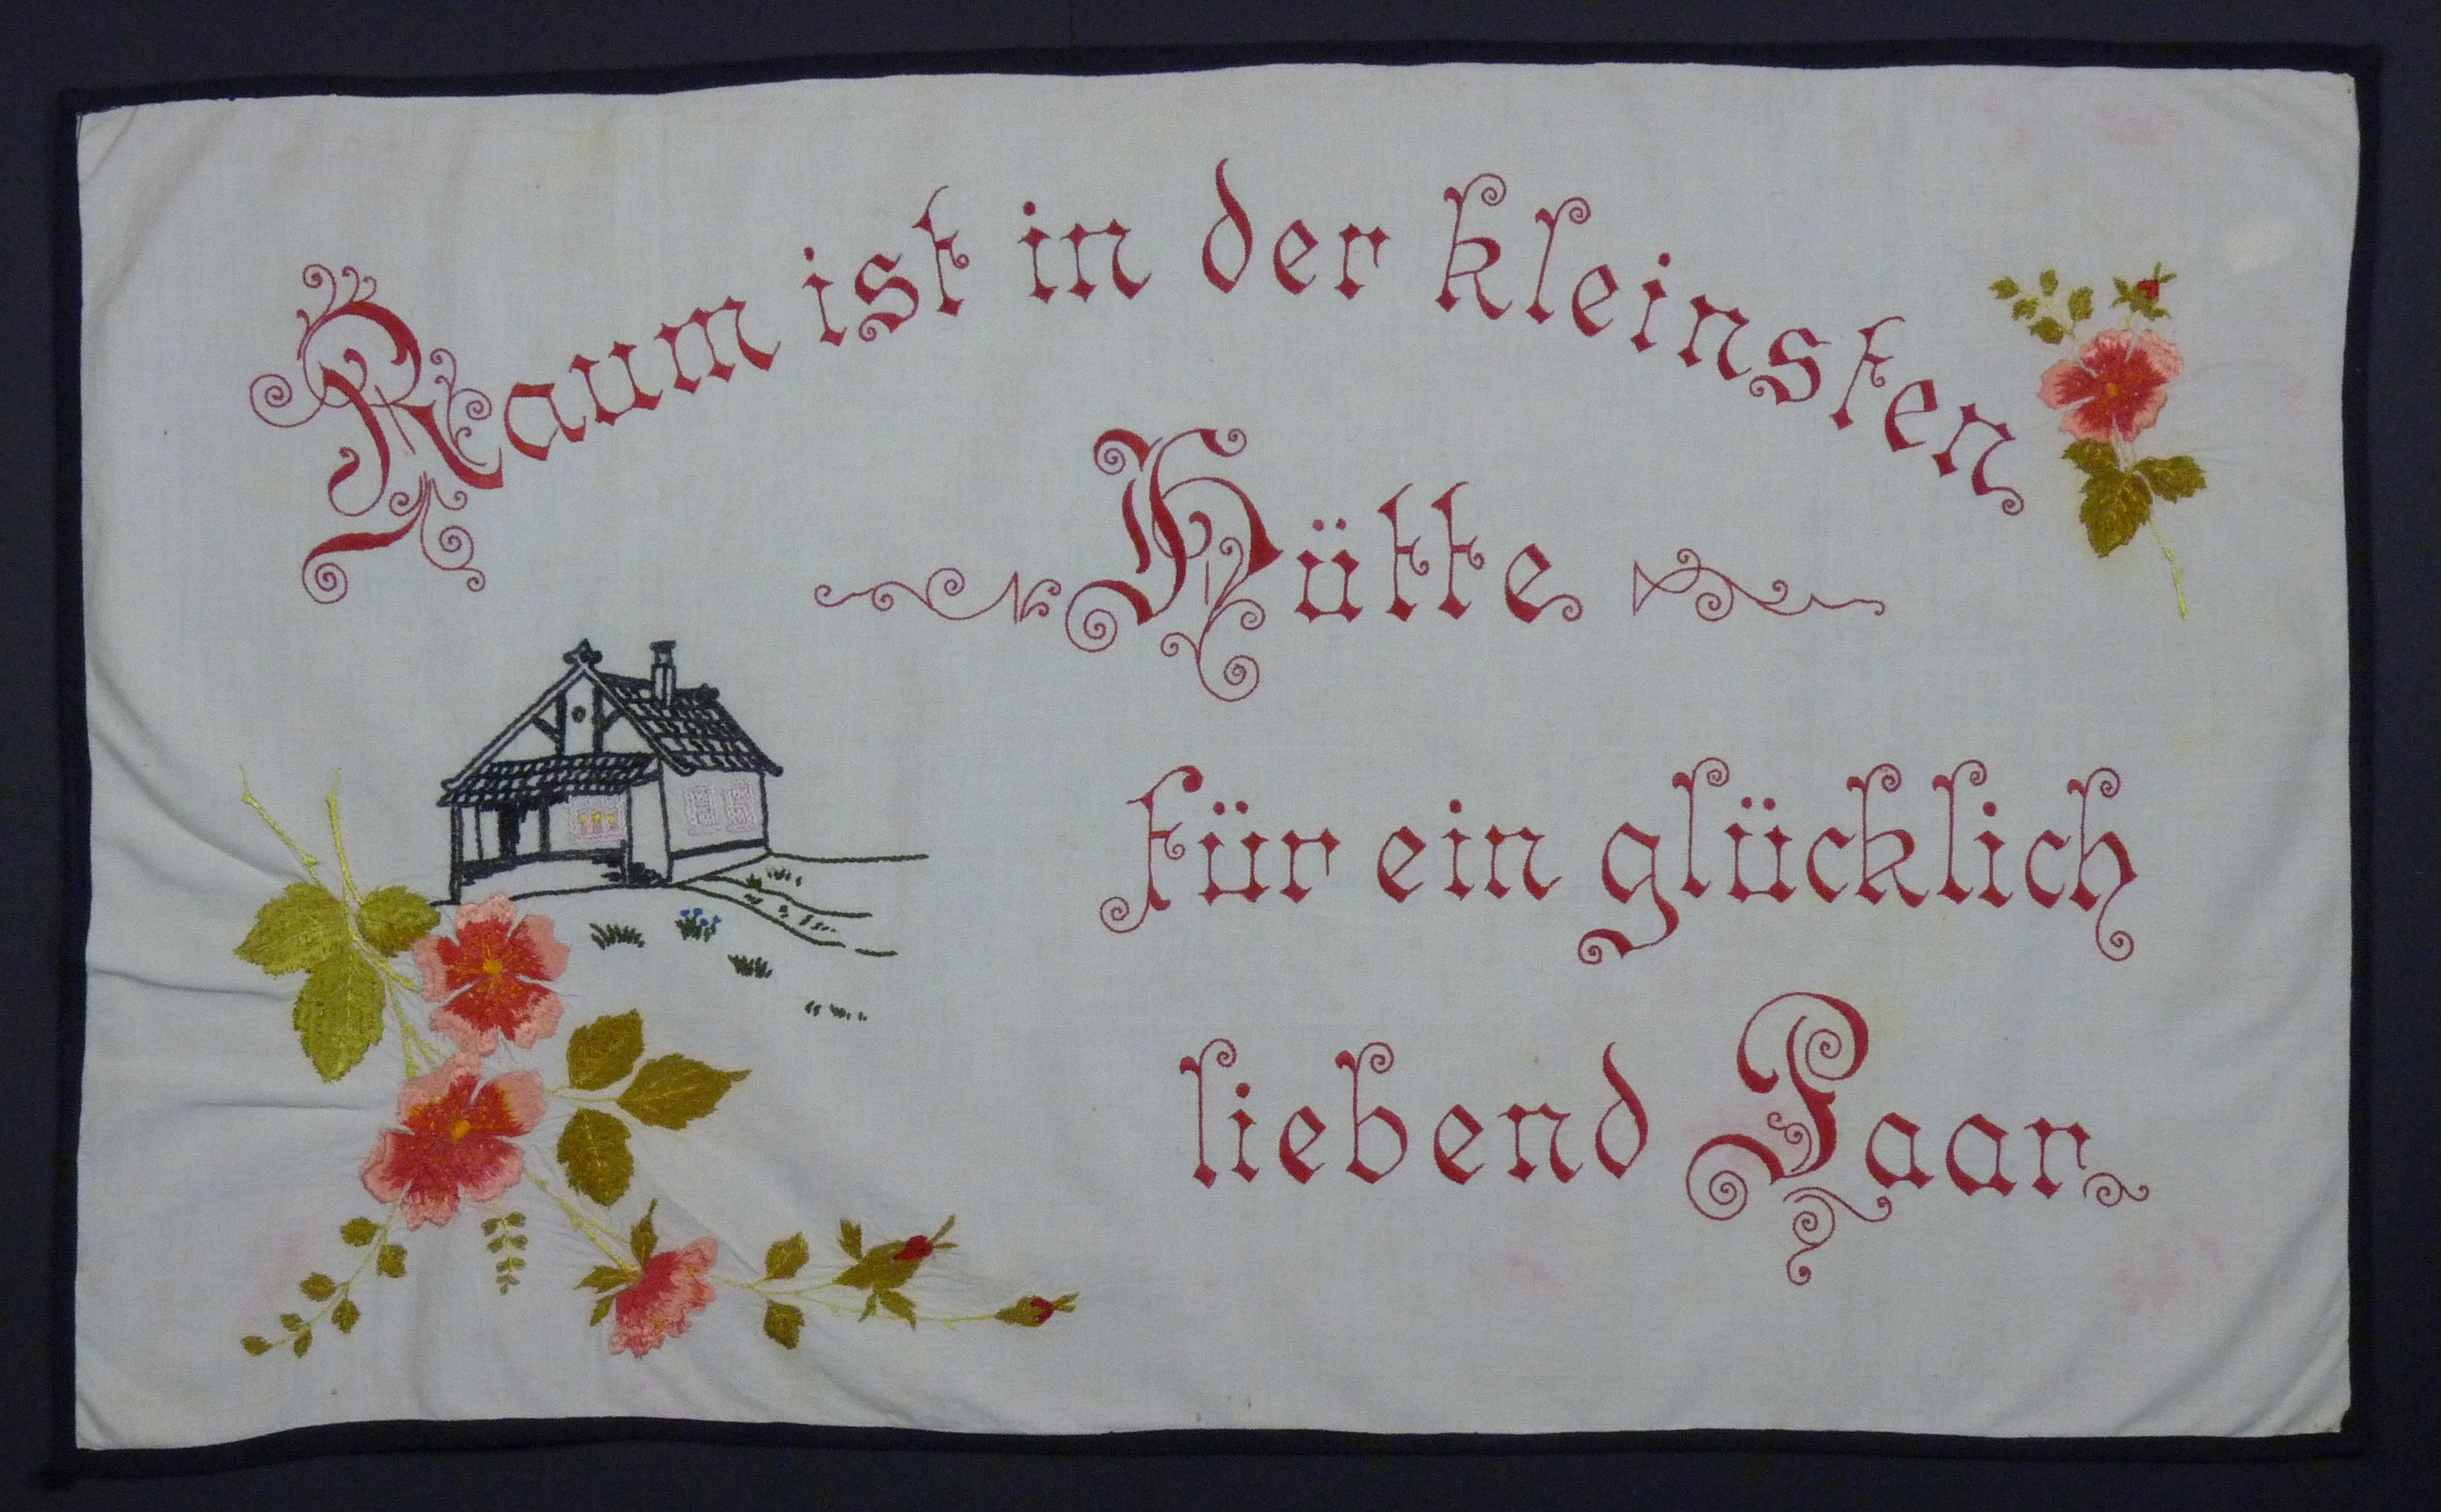 Raum ist in der kleinsten
Hütte
für ein glücklich
liebend Paar